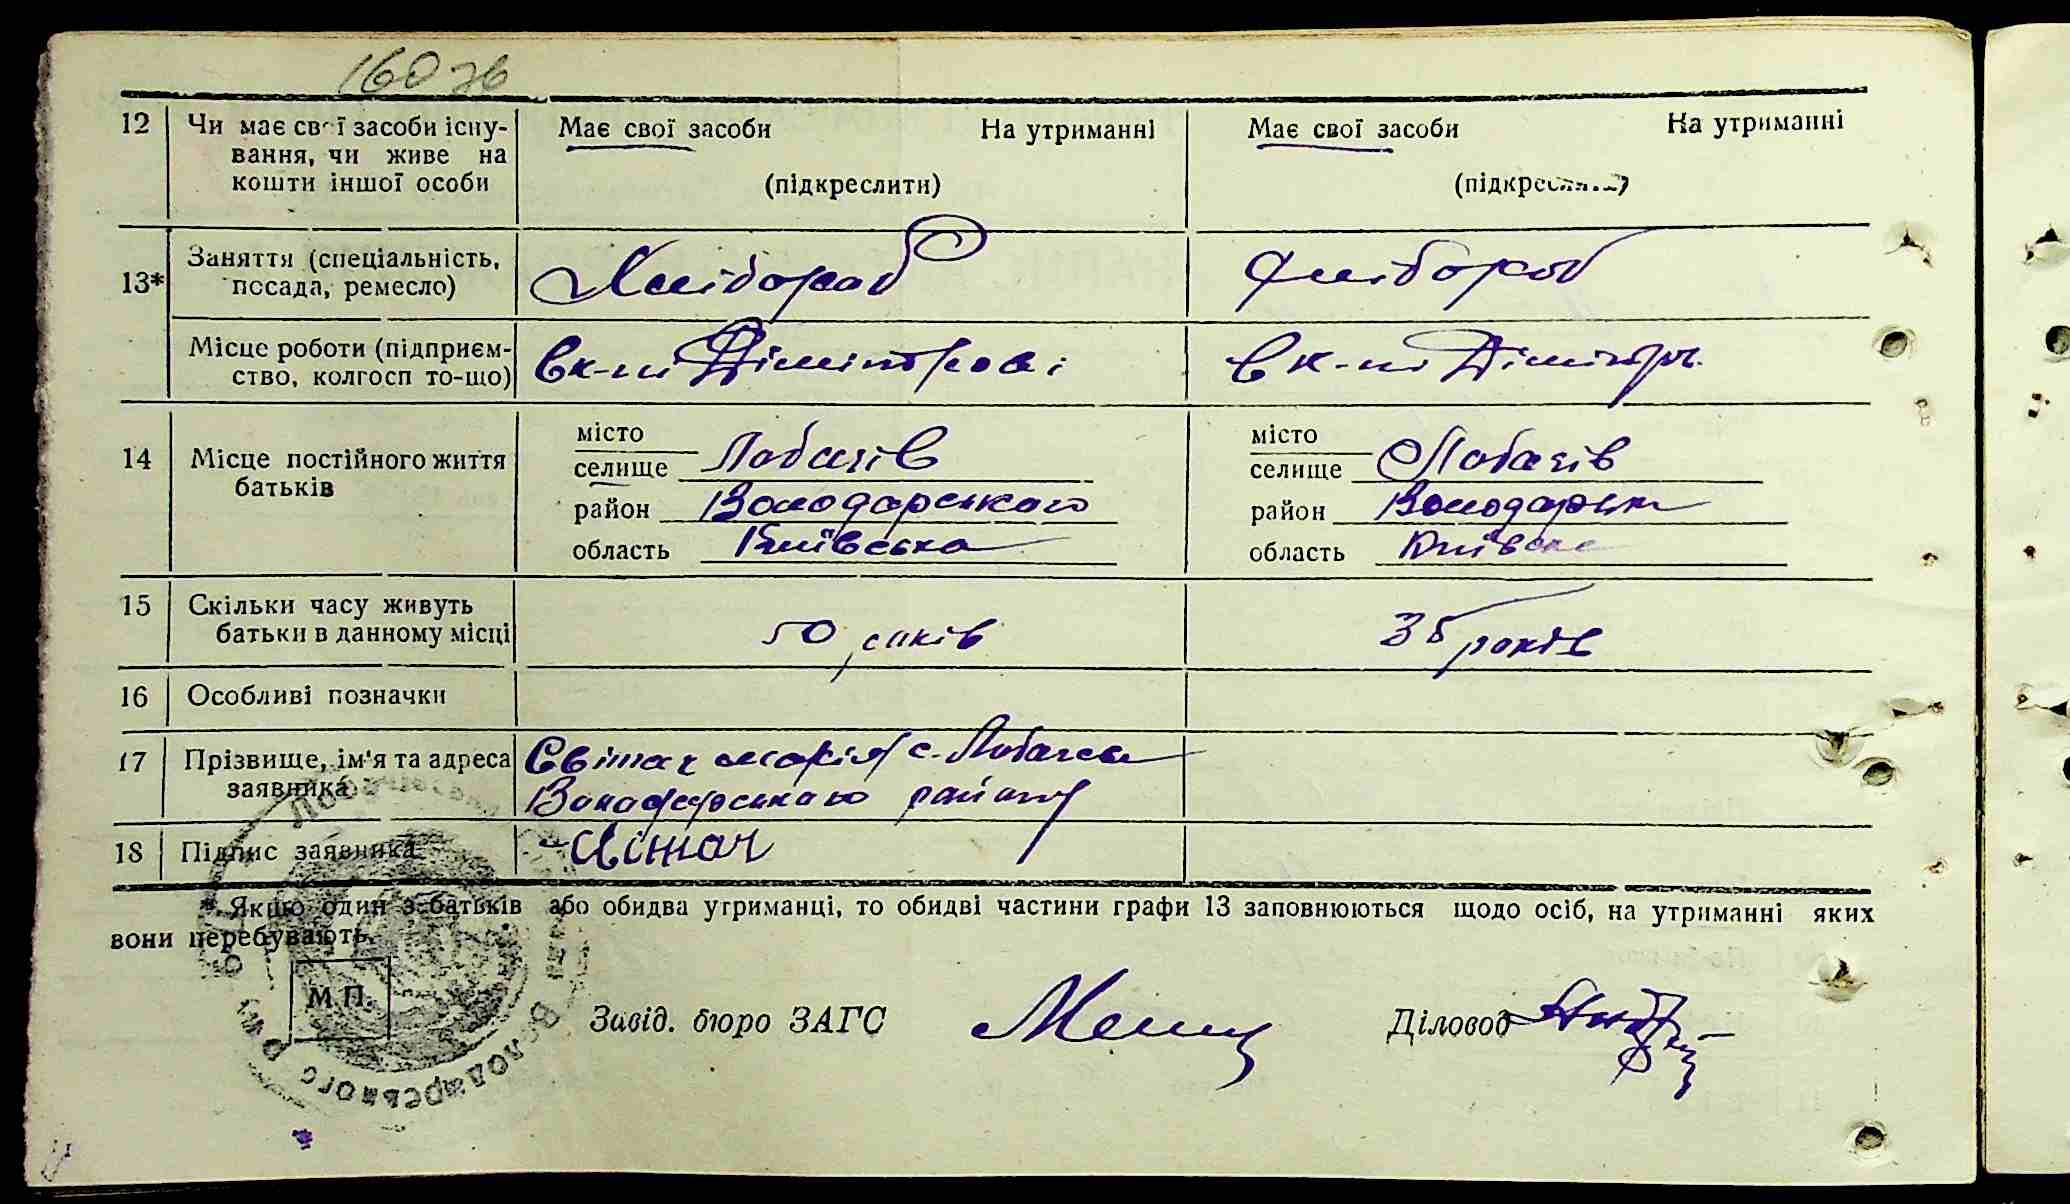 160 зв
12 Чи має свої засоби існу- Має свої засоби На утриманні Має свої засоби На утриманні
вання, чи живе на
кошти іншої особи (підкреслити) (підкреслити)
13* Заняття (спеціальність, Хлібороб Хлібороб
посада, ремесло)
Місце роботи (підприєм- Вк-пі Дімітрова Вк-пі
ство, колгосп то-що)
14 Місце постійного життя місто місто
батьків селище Лобачів селище Лобачів
район Володарського район
область Київська область Київська
15 Скільки часу живуть
батьки в данному місці 50 років 35 років
16 Особливі позначки
17 Прізвище, ім'я та адреса Світач Марія с. Лобачев
заявника Володарського району
18 Підпис заявника Світач
* Якщо один з батьків або обидва утриманці, то обидві частини графи 13 заповнюються щодо осіб, на утриманні яких
вони перебувають.
М.П.
Завід. бюро ЗАГС Діловод
Володарського